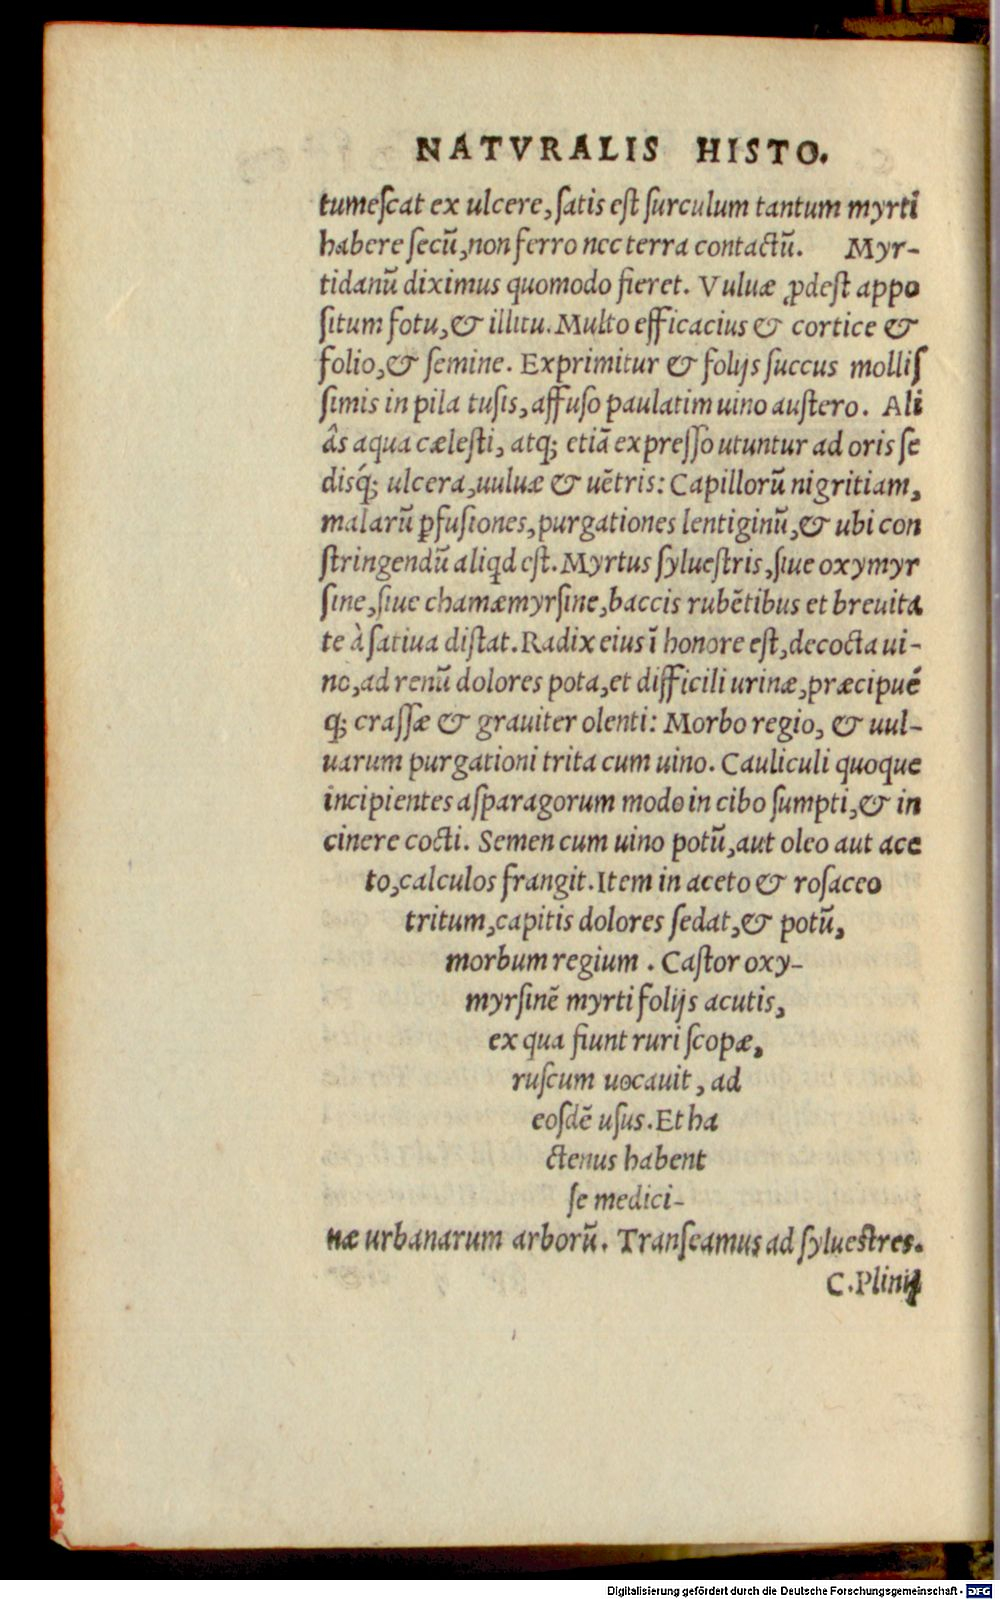 NATVRALIS HISTO.
tumeſcat ex ulcere, ſatis eſt ſurculum tantum myrti
habere ſecũ, non ferro nec terra contactũ. Myr-
tidanũ diximus quomodo fieret. Vuluæ ꝓdeſt appo
ſitum fotu, & illitu. Multo efficacius & cortice &
folio, & ſemine. Exprimitur & folijs ſuccus molliſ
ſimis in pila tuſis, affuſo paulatim uino auſtero. Ali
âs aqua cæleſti, atq; etiã expreſſo utuntur ad oris ſe
disq́; ulcera, uuluæ & uẽtris: Capillorũ nigritiam,
malarũ ꝑfuſiones, purgationes lentiginũ, & ubi con
ſtringendũ aliqd eſt. Myrtus ſylueſtris, ſiue oxymyr
ſine, ſiue chamæmyrſine, baccis rubẽtibus et breuita
te à ſatiua diſtat. Radix eius ĩ honore eſt, decocta ui-
no, ad renũ dolores pota, et difficili urinæ, præcipué
q; craſſæ & grauiter olenti: Morbo regio, & uul-
uarum purgationi trita cum uino. Cauliculi quoque
incipientes aſparagorum modo in cibo ſumpti, & in
cinere cocti. Semen cum uino potũ, aut oleo aut ace
to, calculos frangit. Item in aceto & roſaceo
tritum, capitis dolores ſedat, & potũ,
morbum regium. Caſtor oxy-
myrſinẽ myrti folijs acutis,
ex qua fiunt ruri ſcopæ,
ruſcum uocauit, ad
eoſdẽ uſus. Et ha
ctenus habent
ſe medici-
næ urbanarum arborũ. Tranſeamus ad ſylueſtres.
C. Plinij
Digitalisierung gefördert durch die Deutsche Forschungsgemeinschaft - DFG